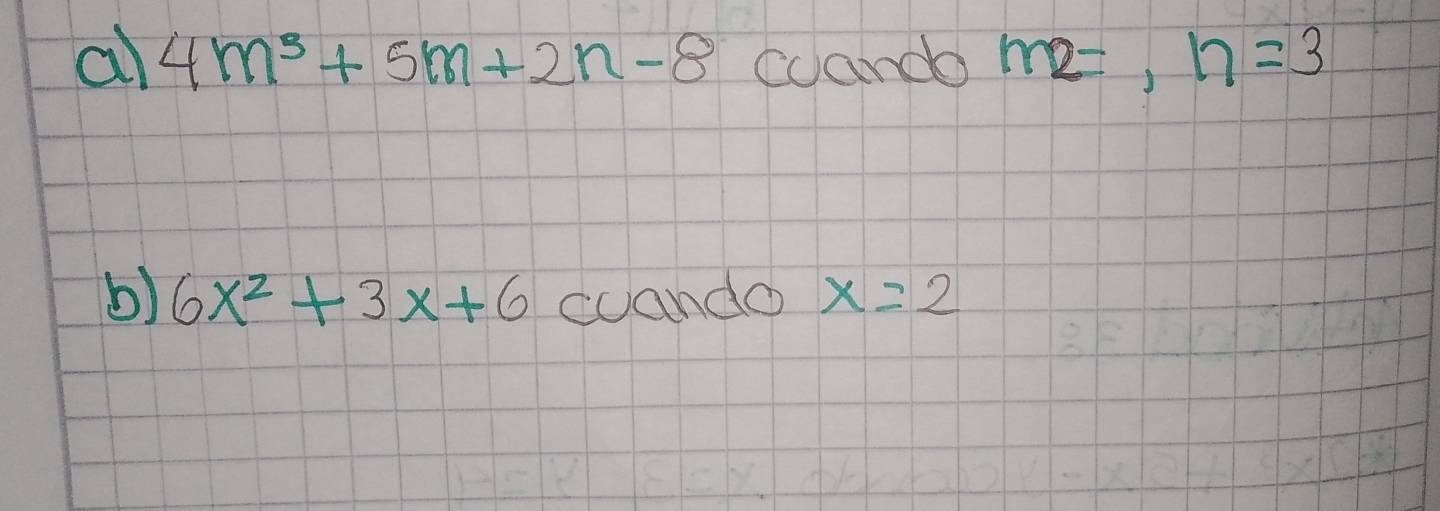 a) 4m³ + 5m + 2n - 8 cuando m2=, n = 3
b) 6x² + 3x + 6 cuando x = 2